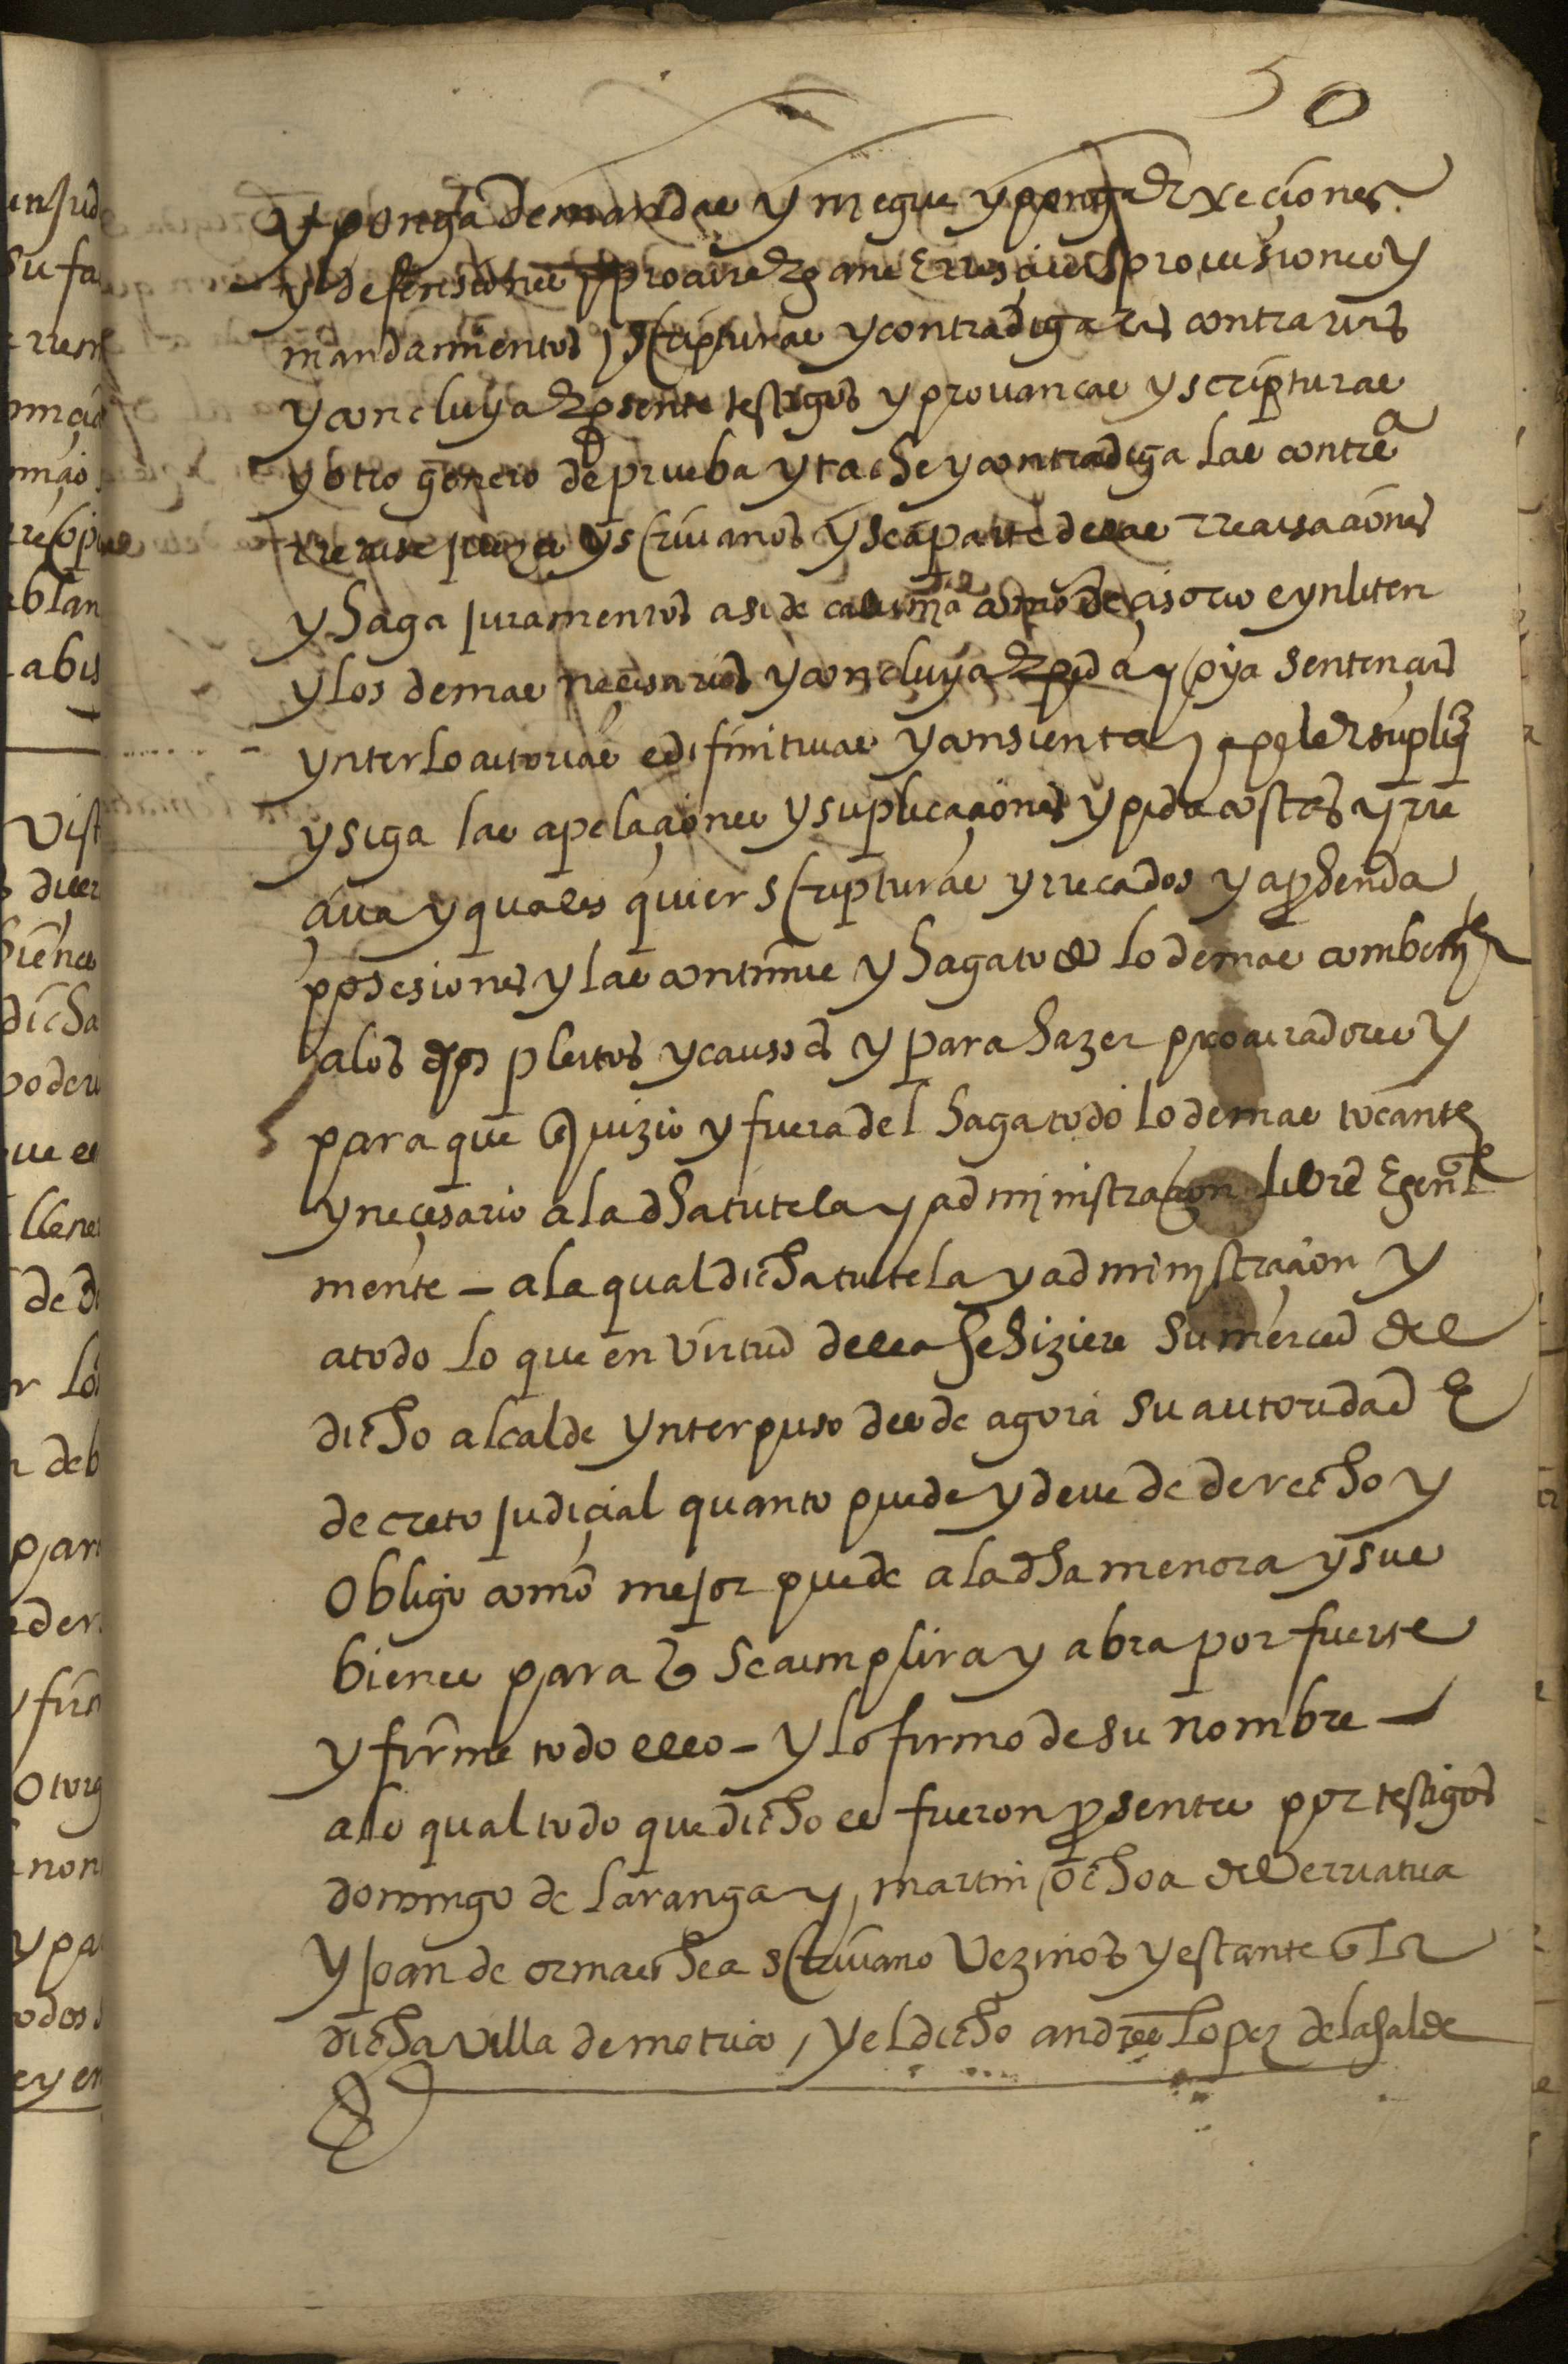 50
y ponga demandas y niegue y ponga exeçiones
y defensiones procure e gane executorias provisiones y
mandamientos y scripturas y contradiga las contrarias
y concluya e presente testigos y provanças y scripturas
y otro genero de prueba y tache y contradiga las contras
rrecuse juezes y scrivanos y se aparte dellas rrecusaciones
y haga juramentos asi de calunia como deçisorio eynliten
y los demas neçesarios y concluya e pida y oya sentençias
ynterlocutorias e difinitivas y consienta y apele e suplique
y siga las apelaçiones y suplicaçiones y pida costas y rre
çiva y quales quier scripturas y rrecados y aprehenda
posesiones y las continue y haga todo lo demas comben
a los dhos pleitos y caussas y para hazer procuradores y
para que en juizio y fuera del haga todo lo demas tocante
y neçesario a la dha tutela y administraçion libre e general
mente – a la qual dicha tutela y administraçion y
a todo lo que en virtud della se hiziere su merced del
dicho alcalde ynterpuso desde agora su autoridad e
decreto judiçial quanto puede y deve de derecho y
obligo como mejor puede a la dha menora y sus
bienes para que se cumplira y abra por fuerte
y firme todo ello – y lo firmo de su nombre –
a lo qual todo que dicho es fueron presentes por testigos
domingo de laranga y martin ochoa de verriatua
y joan de ormaechea scrivano vezinos y estante en la
dicha villa de motrico / y el dicho andres lopez de la salde